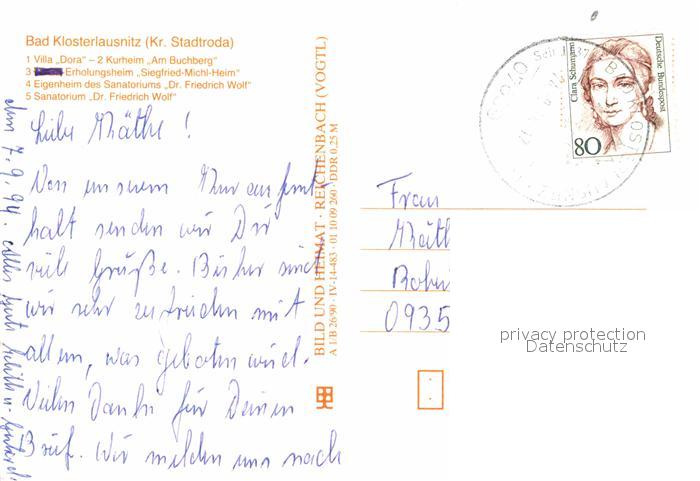 Bad Klosterlausnitz (Kr. Stadtroda)
1 Villa „Dora“ – 2 Kurheim „Am Buchberg“
3 Erholungsheim „Siegfried-Michl-Heim“
4 Eigenheim des Sanatoriums „Dr. Friedrich Wolf“
5 Sanatorium „Dr. Friedrich Wolf“
Liebe Käthe!
Von unserem Kuraufent
halt senden wir Dir
viele Grüße. Bisher sind
wir sehr zufrieden mit
allem, was geboten wird.
Vielen Dank für Deinen
Brief. Wir melden uns nach
den 7.9.94. Alles Gute
BILD UND HEIMAT · REICHENBACH (VOGTL)
A 1/B 26/90 · IV-14-483 · 01 10 09 260 · DDR 0,25 M
Clara Schumann
Deutsche Bundespost
80
Frau
Käth
0935
privacy protection
Datenschutz